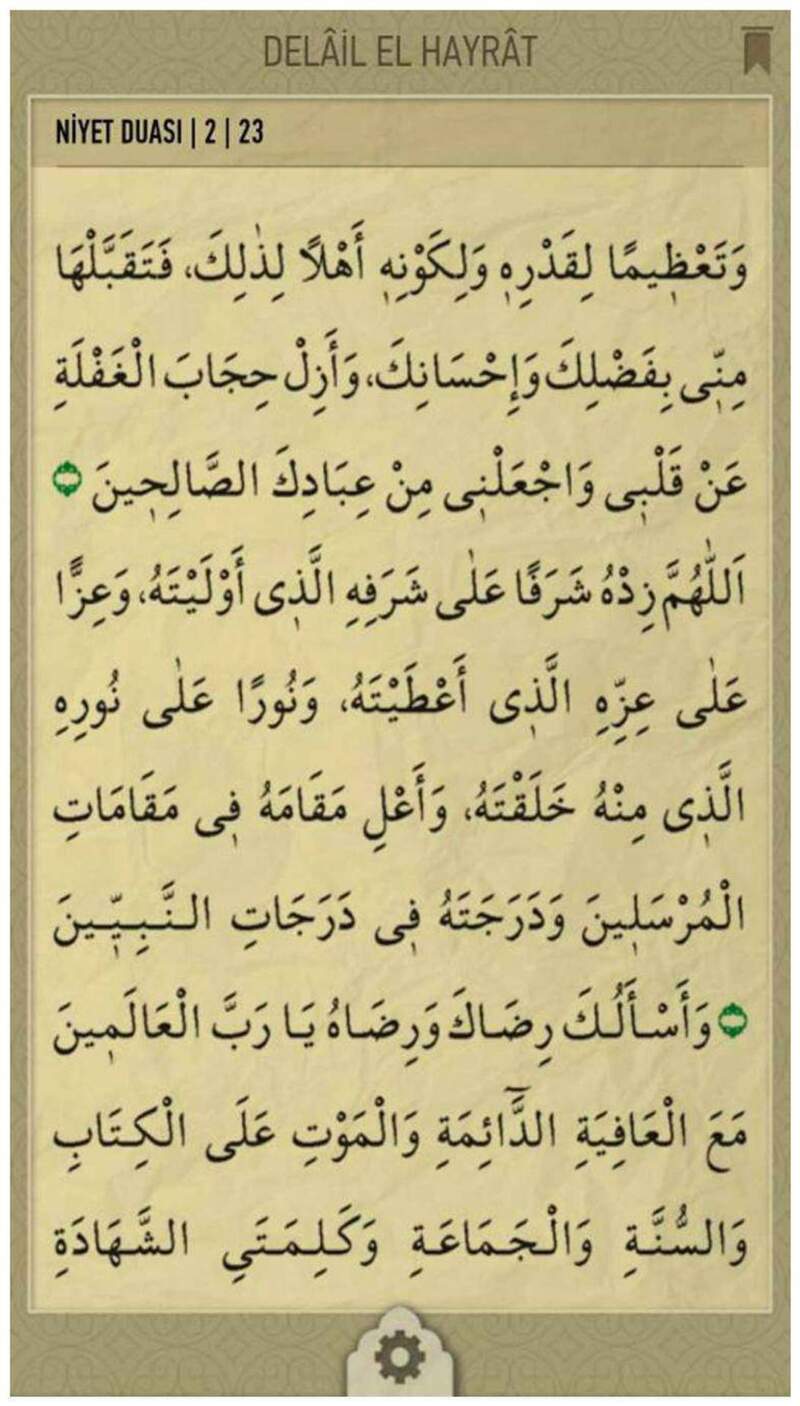 DELÂİL EL HAYRÂT
NİYET DUASI | 2 | 23
وَتَعْظ۪يمًا لِقَدْرِه۪ وَلِكَوْنِه۪ أَهْلًا لِذٰلِكَ، فَتَقَبَّلْهَا
مِنّ۪ى بِفَضْلِكَ وَإِحْسَانِكَ، وَأَزِلْ حِجَابَ الْغَفْلَةِ
عَنْ قَلْب۪ى وَاجْعَلْن۪ى مِنْ عِبَادِكَ الصَّالِح۪ينَ
اَللّٰهُمَّ زِدْهُ شَرَفًا عَلٰى شَرَفِهِ الَّذ۪ى أَوْلَيْتَهُ، وَعِزًّا
عَلٰى عِزِّهِ الَّذ۪ى أَعْطَيْتَهُ، وَنُورًا عَلٰى نُورِهِ
الَّذ۪ى مِنْهُ خَلَقْتَهُ، وَأَعْلِ مَقَامَهُ ف۪ى مَقَامَاتِ
الْمُرْسَل۪ينَ وَدَرَجَتَهُ ف۪ى دَرَجَاتِ النَّبِيّ۪ينَ
وَأَسْأَلُكَ رِضَاكَ وَرِضَاهُ يَا رَبَّ الْعَالَم۪ينَ
مَعَ الْعَافِيَةِ الدَّٓائِمَةِ وَالْمَوْتِ عَلَى الْكِتَابِ
وَالسُّنَّةِ وَالْجَمَاعَةِ وَكَلِمَتَيِ الشَّهَادَةِ